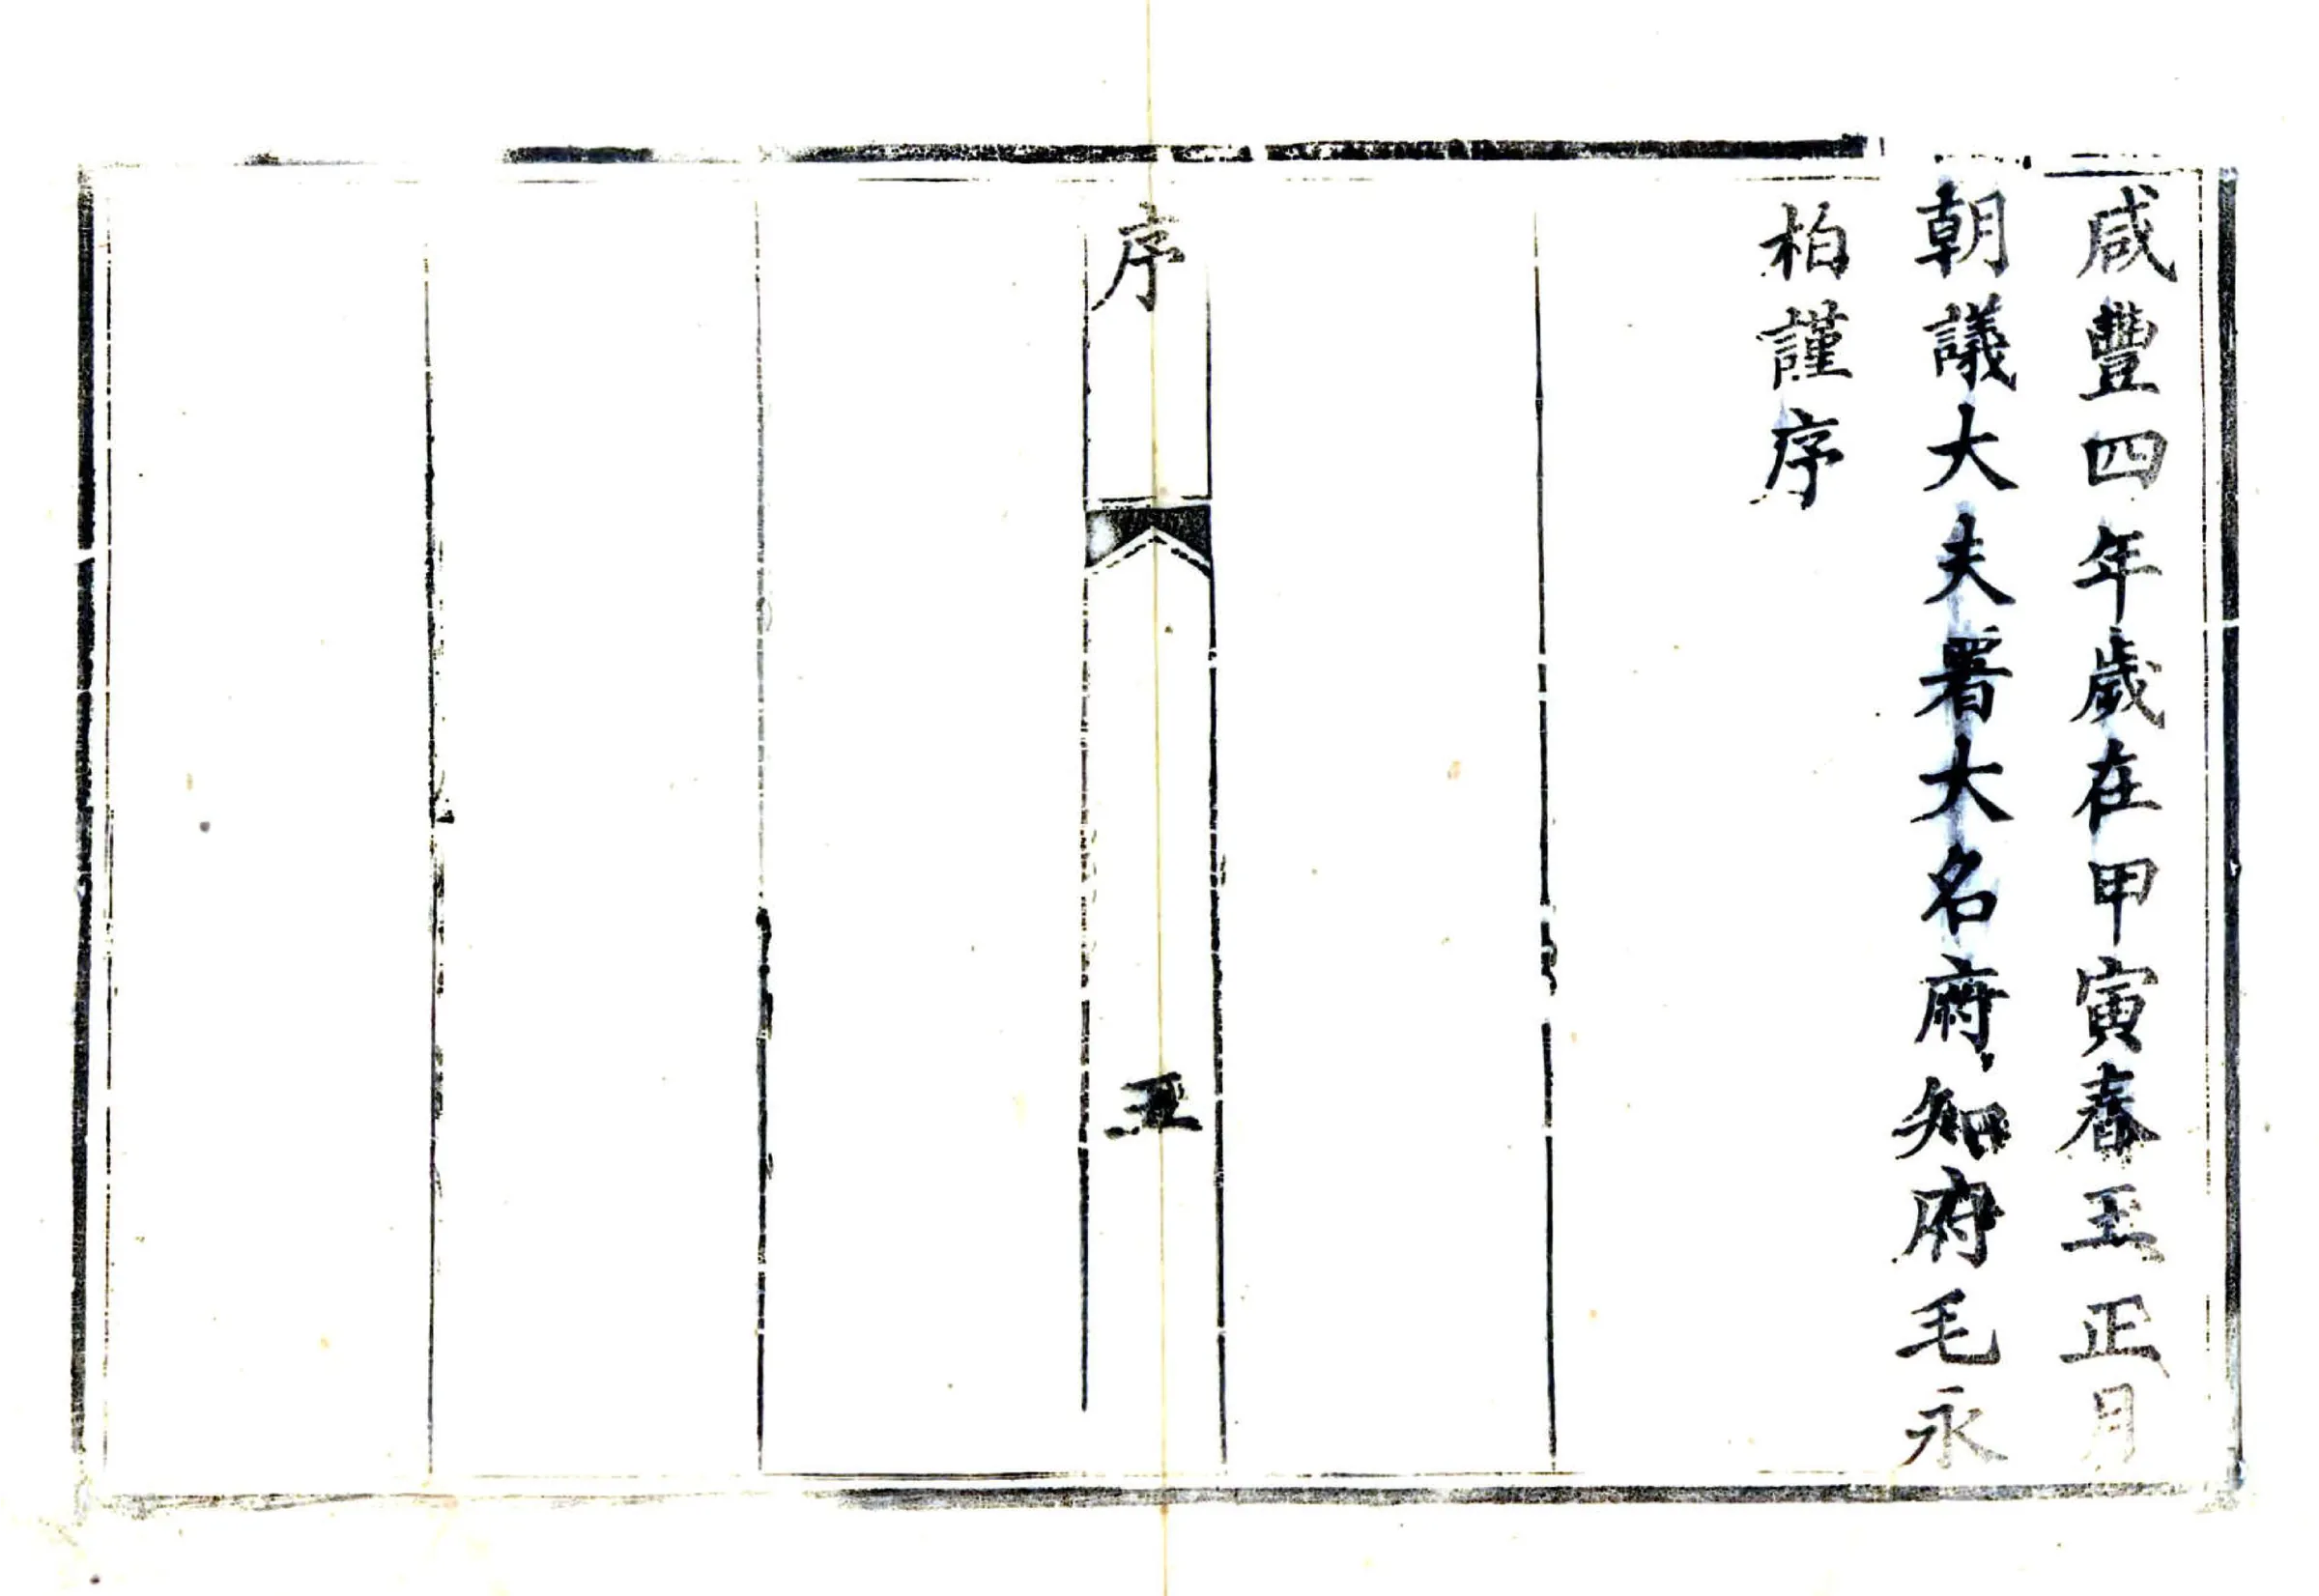 咸豐四年歲在甲寅春王正月
朝議大夫署大名府知府毛永
柏謹序
序
五